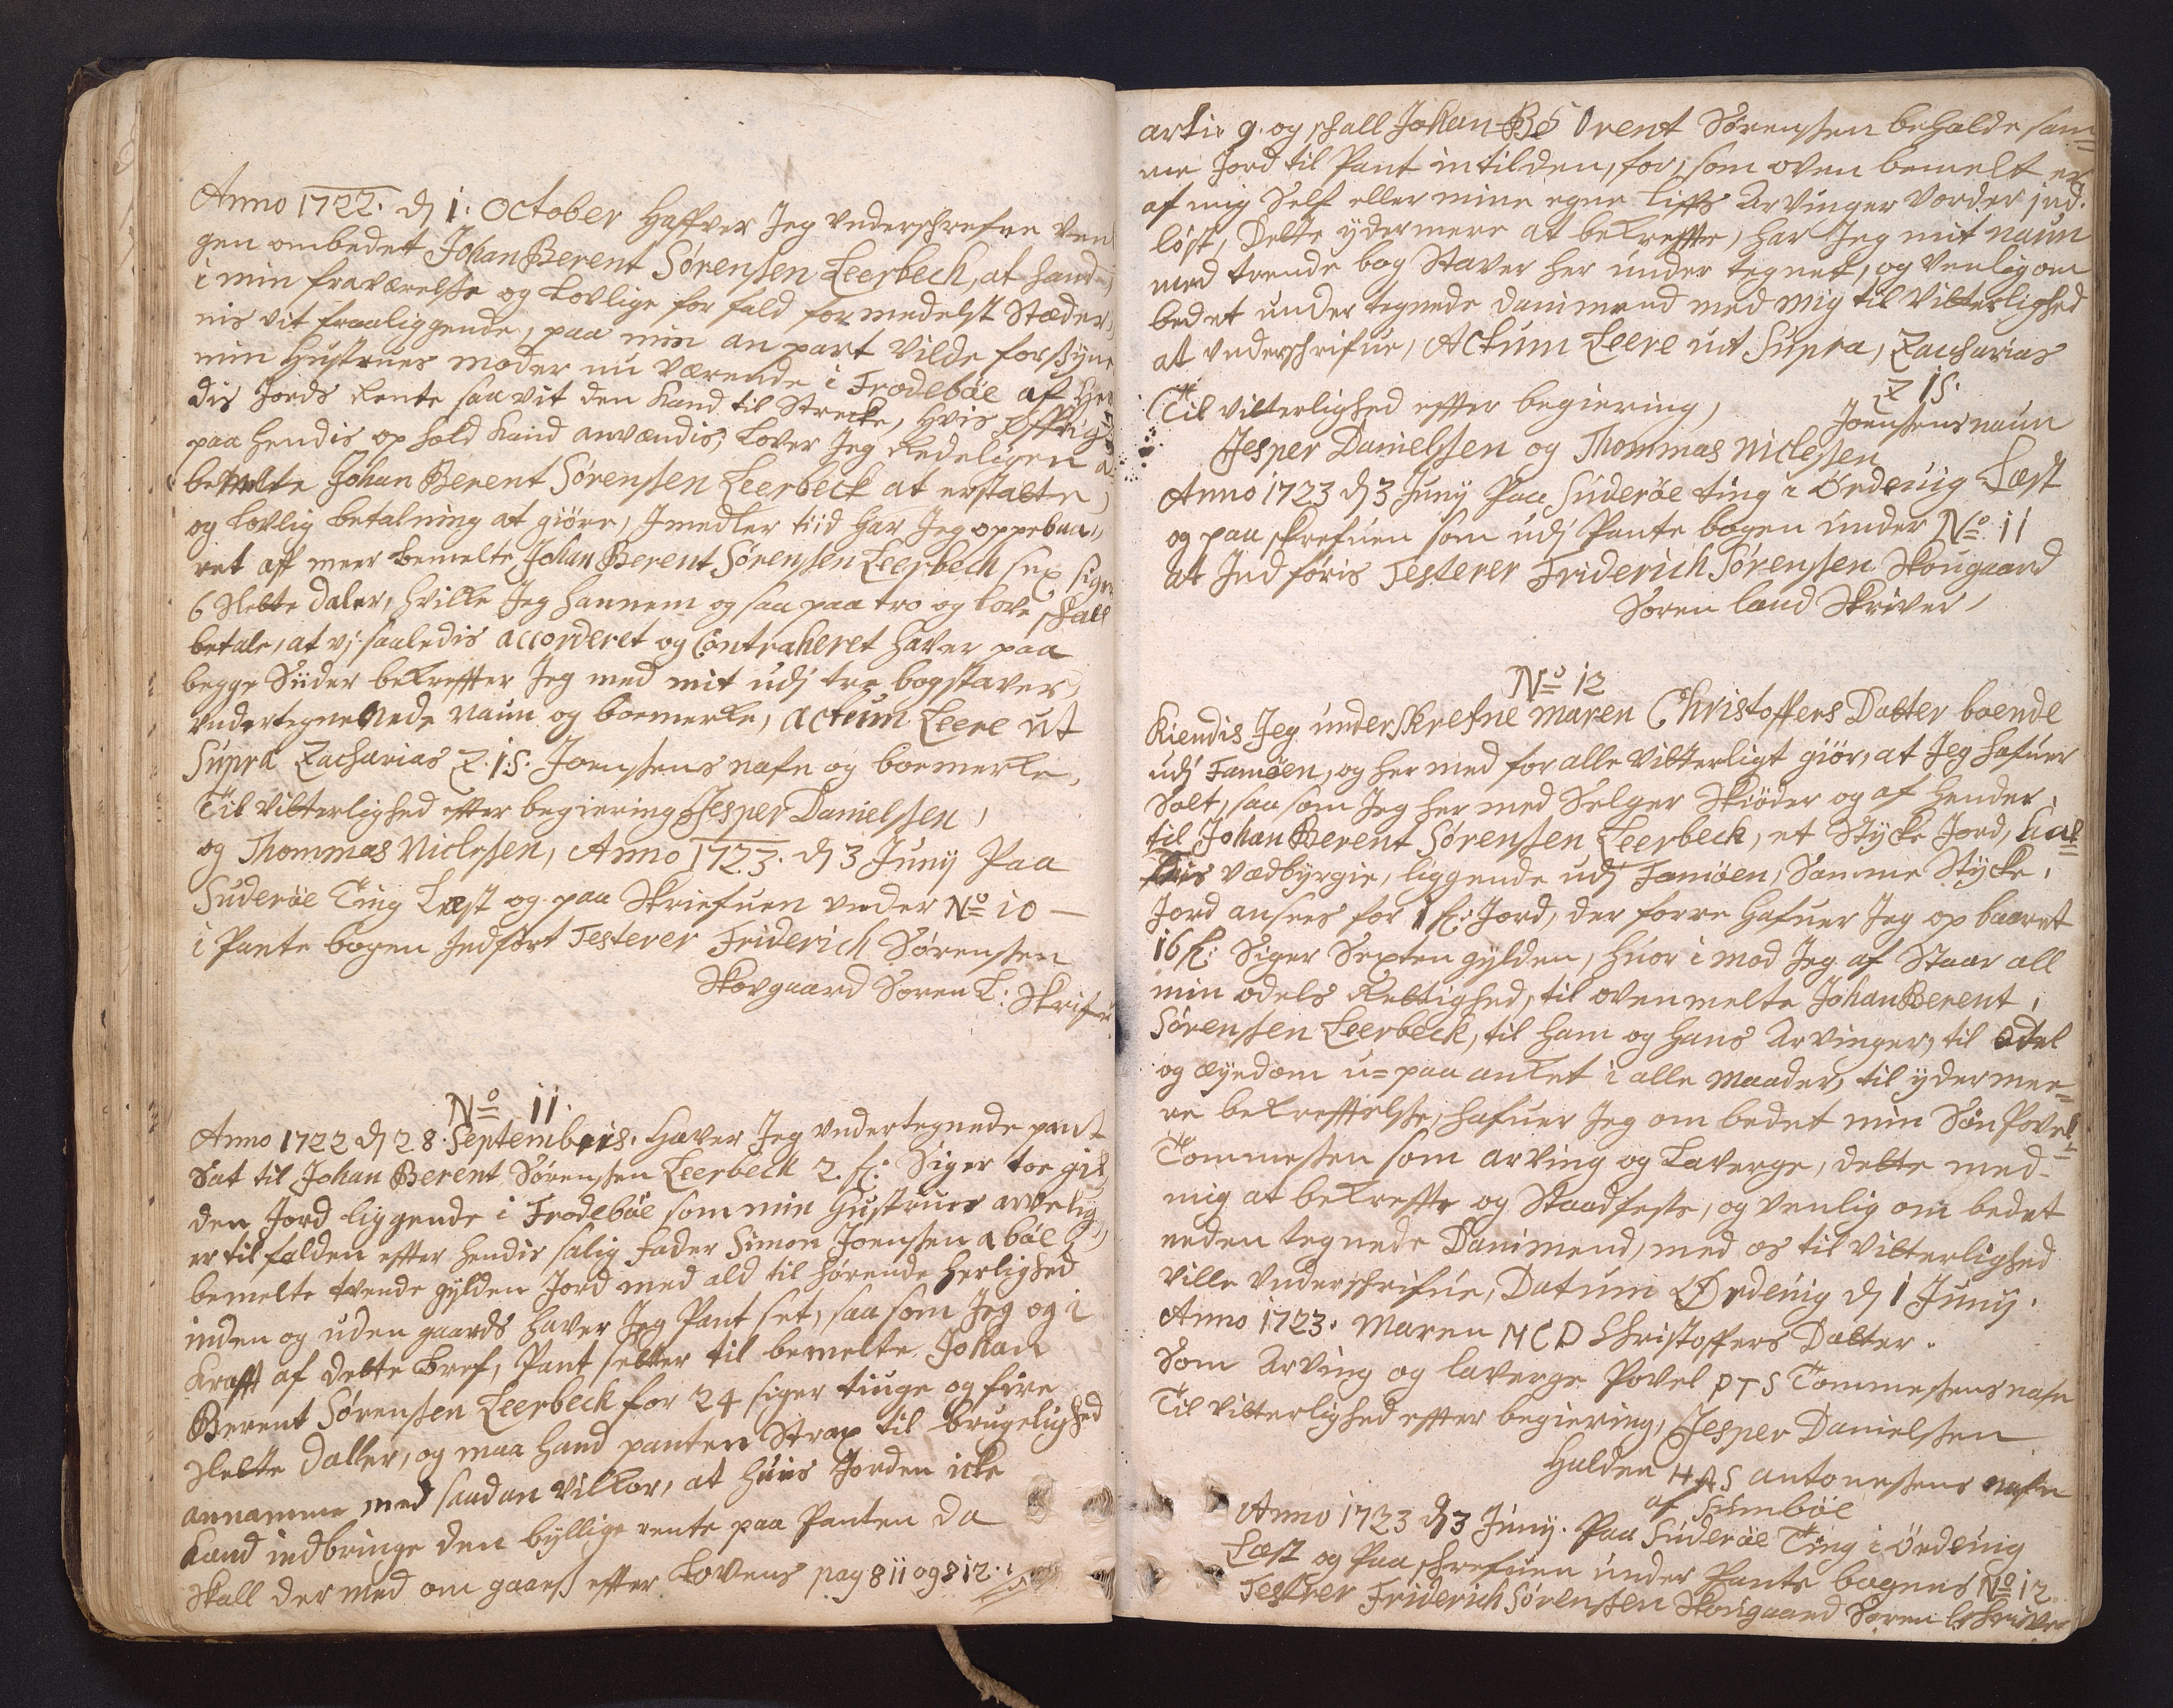 Anno 1722. dj 1. October Haffver Jeg underschrefne Ven
gen ombedet Johan Berent Sørenssen Leerbech, at hand
i min fraværelsse og Lovlige for fald formedelst Stæder,
nis vit fraaliggende, paa min an part vilde forssyne
min Hustrues moder nu værende i Frodebøe af Hen
dis Jords Rente saa vit den Kand til Strecke, Hvis
paa Hendis op hold Kand anvændis, Lover Jeg Redeligen
bemelte Johan Berent Sørenssen Leerbeck at erstatte,
og Lovlig betalning at giøre, Jmedler tiid har Jeg oppebaa,,
ret aff meer bemelte Johan Berent Sørenssen Leerbech sex siger
6 Slette daler, hvilke Jeg hannem og saa paa tro og Love skall
betale, at vj saaledis accorderet og Contraheret haver paa
begge Siider bekreffter Jeg med mit udj tre bogstaver,
undertegnenede Naun og boemerke, actum Leere ut
Supra Zacharias Z. i S. Joenssens nafn og boemerke,
Til vitterlighed effter begiering Jesper Danielssen,
og Thommas Niclessen, Anno 1723. dj 3 Junij Paa
Suderøe Ting Læst og paa Skriefuen under No 10 —
i Pante bogen Jndført Testerer Friderich Sørenssen
Skovgaard Soren L: Skrifver
No 11.
Anno 1722 dj 28. Septembris. Haver Jeg undertegnede pant
Sat til Johan Berent Sørenssen Leerbeck 2. fl: Siger toe gil,
den Jord liggende i Frodebøe som min Hustrues arvelig
er til falden effter hendis salig fader Simon Joenssen
bemelte tvende gylden Jord med ald til hørende herlighed
inden og uden gaards haver Jeg Pant set, saa som Jeg og i
Krafft af dette bref, Pant setter til bemelte Johan
Berent Sørenssen Leerbeck for 24 siger tiuge og fire
Slette daller, og maa hand panten Strax til brugelighed
annamme med saadan vilkor, at huis Jorden icke
Kand indbringe den byllige rente paa Panten da
skall der med om gaaess effter Lovens pag 811 og 812.
arti: 9. og skall Johan Be rent Sørenssen beholde sam=
me Jord til Pant intilden, for, som oven bemelt er
af mig Self eller mine egne Liffs Arvinger vorder jnd.
løst, Dette ydermere at bekreffte, har Jeg mit naun
med trende bog Staver her under tegnet, og venlig om
bedet under tegnede Dannmend med mig til Vitterlighed
at underschrifue, Actum Leere ut Supra, Zacharias
Z i S.
Til vitterlighed effter begiering, Joenssens naun
Jesper Danielssen og Thommas Niclessen
Anno 1723 dj 3 Junij Paa Suderøe ting i Ørdevig Læst
og paa skrefuen som udj Pante bogen under No 11
at Jnd føris Testerer Friderich Sørenssen Skougaard
Soren land Skriver,
No 12
Kiendis Jeg underskrefne Maren Christoffers Datter boende
udj Famøen, og her med for alle vitterligt giør, at Jeg hafuer
Solt, saa som Jeg her med Selger Skiøder og af Hender
til Johan Berent Sørenssen Leerbeck, et Stycke Jord, Kal=
dis vædbyrgie, liggende udj Famøen, Samme Stycke,
Jord ansees for 1 fl: Jord, der forre hafuer Jeg op baaret
16 fl: Siger Sexten gylden, huor i mod Jeg af Staar all
min odels Rettighed, til oven melte Johan Berent,
Sørenssen Leerbeck, til ham og hans Arvinger, til Odel
og æyedom u=paa anket i alle maader, til yder mee=
re bekrefftelsse, hafuer Jeg om bedet min Søn Povel
Tommessen som arving og Laverge, dette med-
mig at bekreffte og Staadfeste, og venlig om bedet
neden tegnede Dannmend, med os til vitterlighed
ville underschrifue, Datum Ørdevig dj 1 Junij.
Anno 1723. Maren MCD Christoffers Datter.
Som Arving og laverge Povel PTS Tommessens nafn
Til vitterlighed effter begiering, Jesper Danielssen
Halden HAS antonessens nafn
af Sumbøe
Anno 1723 dj 3 Junij. Paa Suderøe Ting i Ørdevig
Læst og Paa schrefuen under Pante bogens No 12
Testerer Friderich Sørenssen Skougaard Soren Lschriver